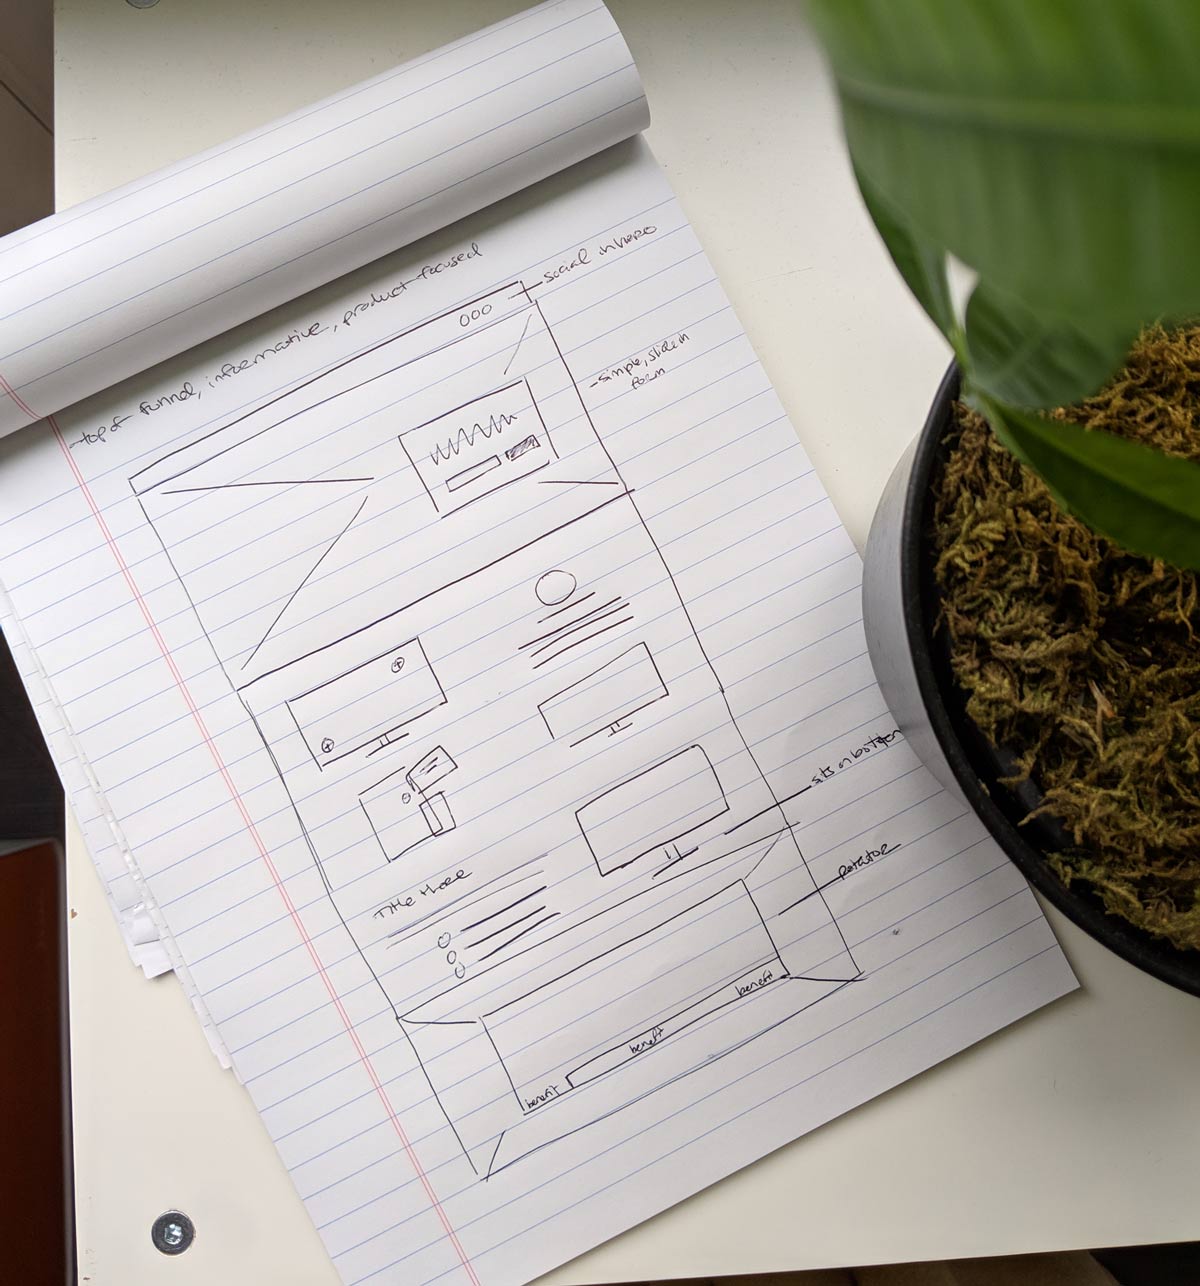 -top of funnel, informative, product-focused
- social in hero
-simple, slide in
form
sits on bottom
Title three
Rotator
benefit
benefit
benefit